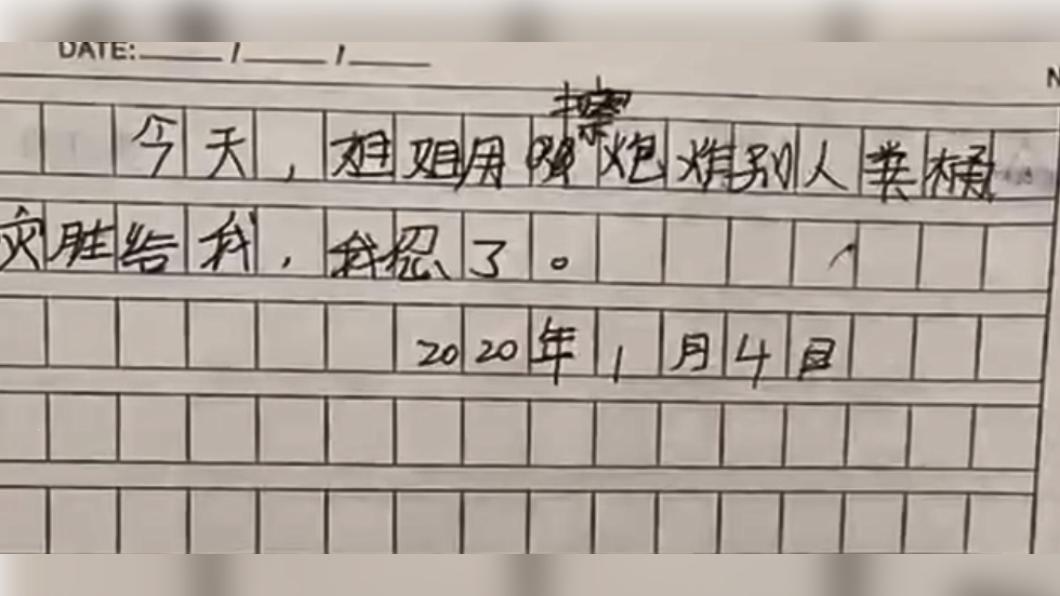 DATE: / /
N
今天,姐姐用擦炮炸别人粪桶
灾胜告我,我忍了。
2020年1月4日